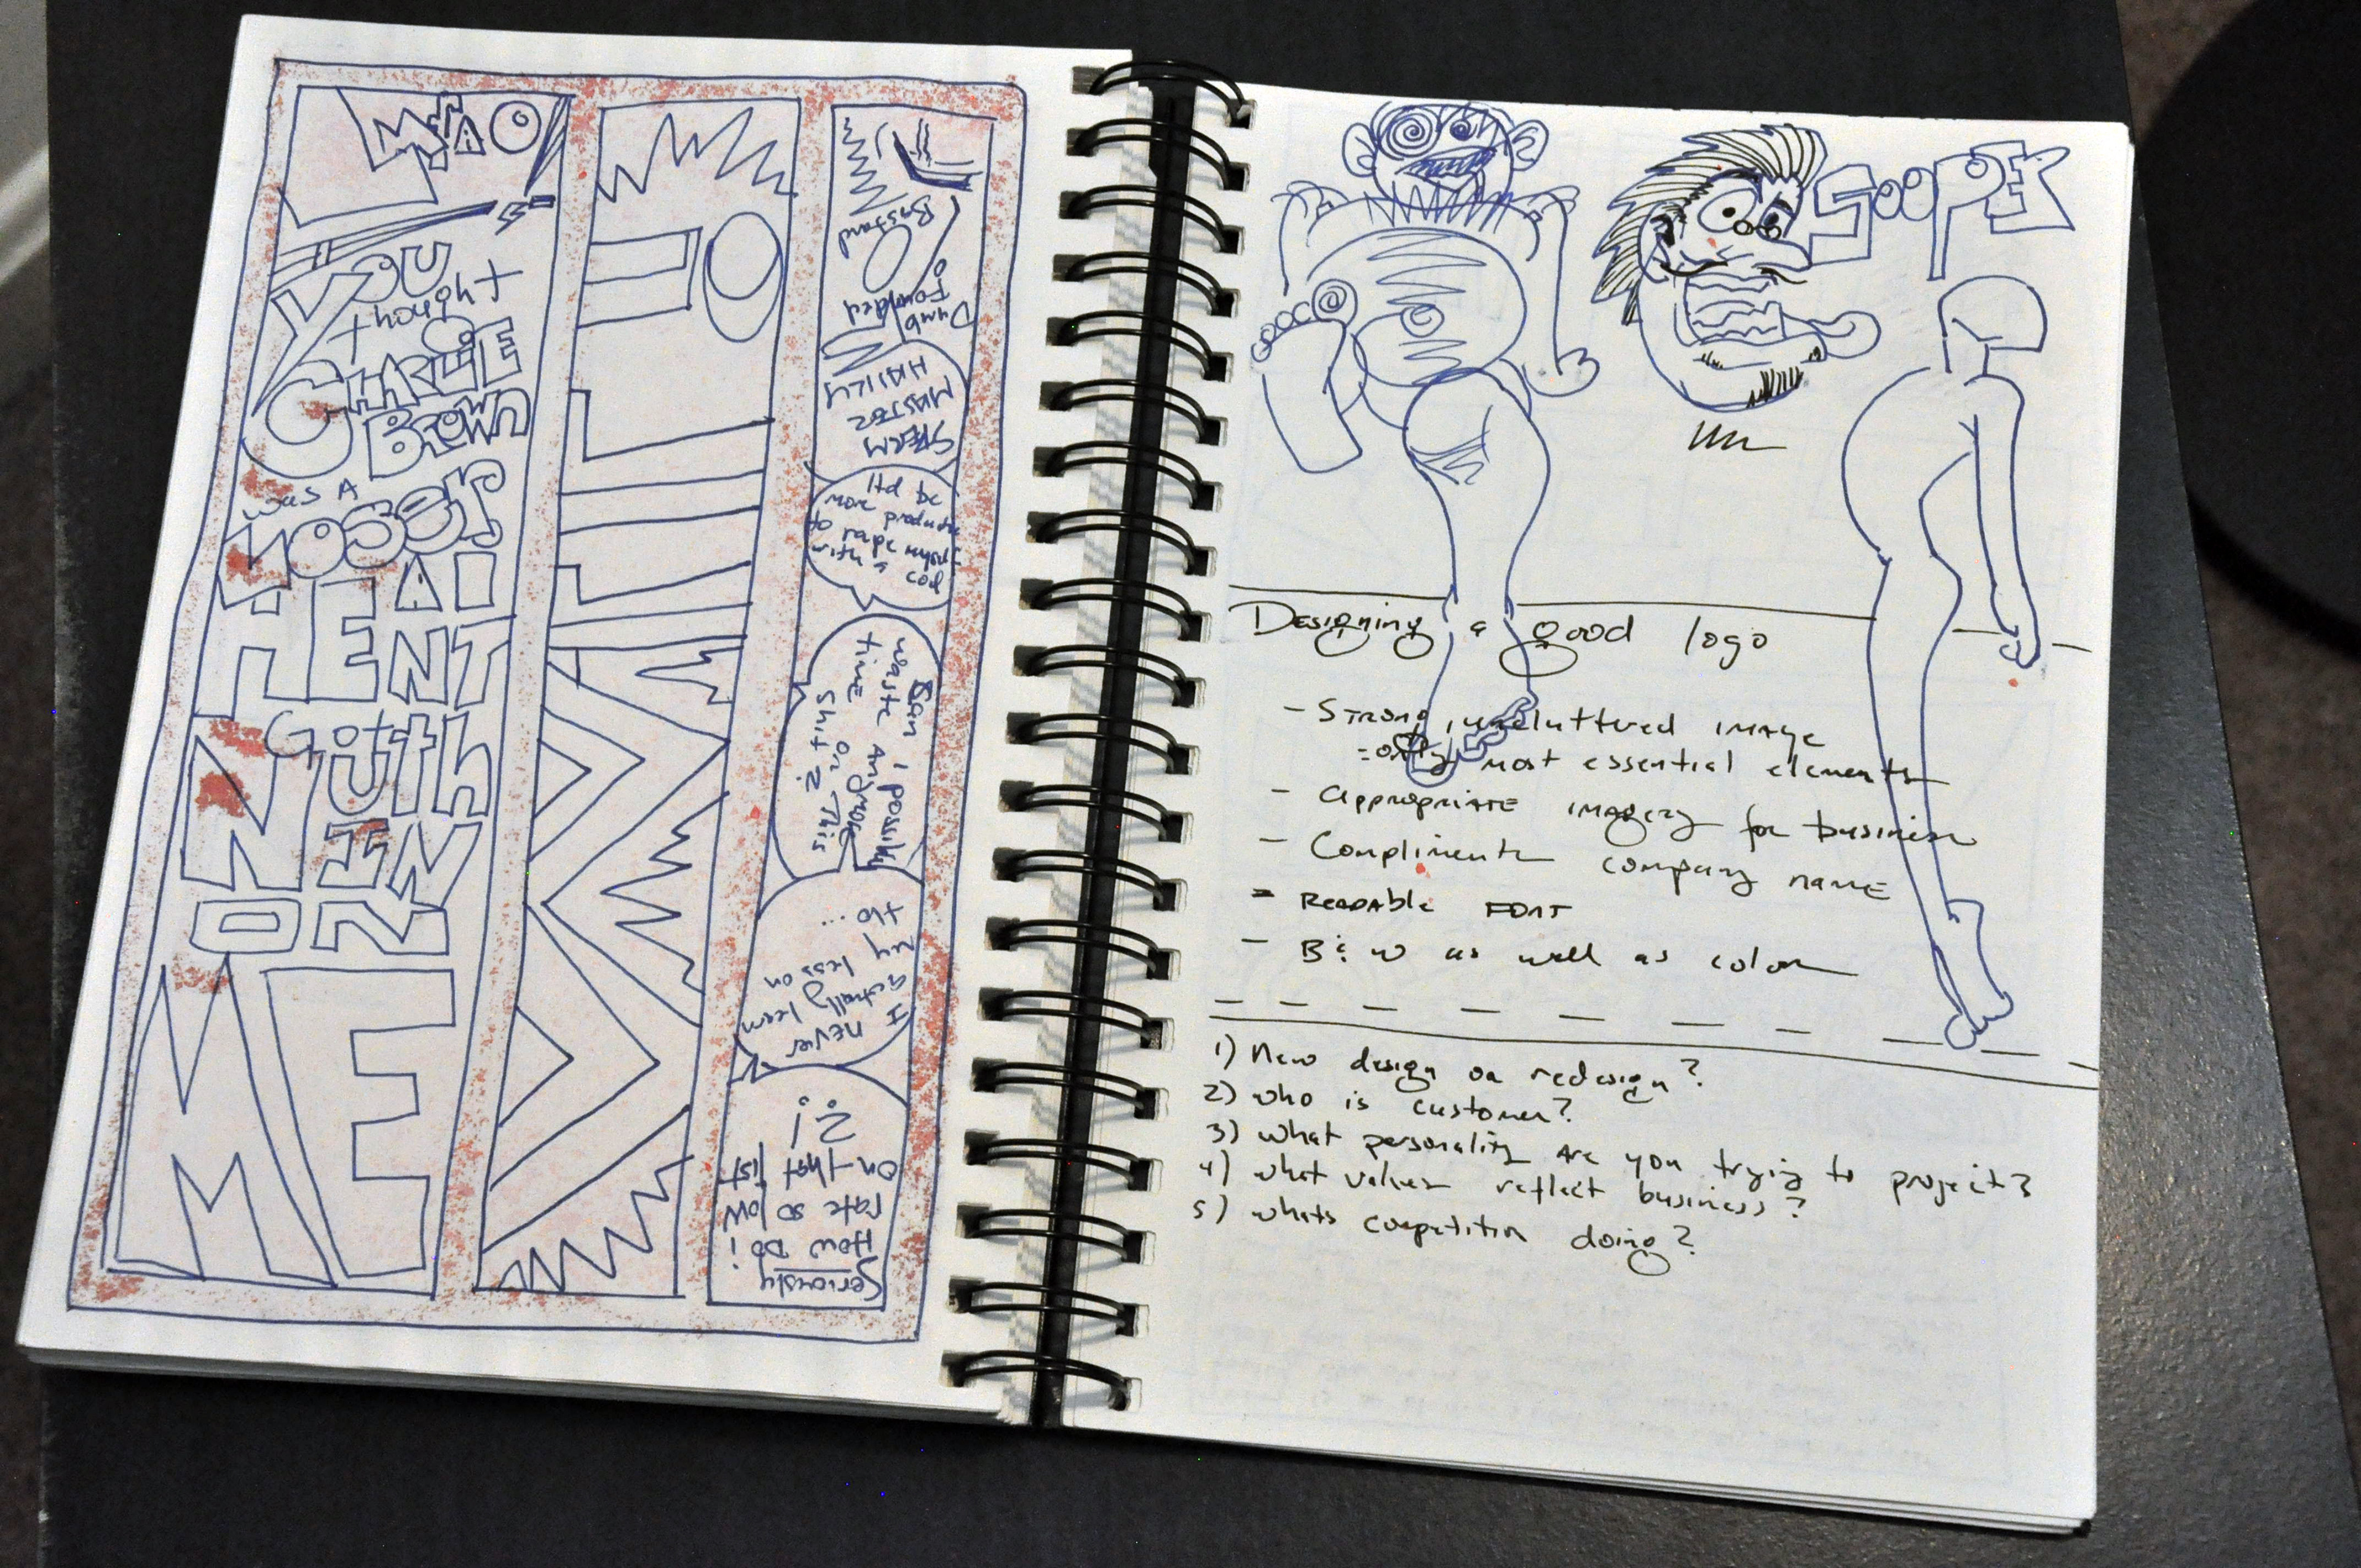 LMFAO
YOU
thought
CHARLIE
BROWN
was A
LOSER
HE AI
ENT
GUTH
NUTHIN
ON
ME
Bastard
Dumb
Founded
SPERM
MASTER
HNILY
Itd be
more productive
to rape myself
with a cod
Can I possibly
waste Anymore
time on This
Shit?
I
never
actually learn
my lesson
tho...
Seriously
How Do i
rate so low
on that list
?!
SOOPER
Designing a good logo
- Strong, uncluttered image
= only most essential elements
- Appropriate imagery for business
- Compliments company name
- Readable FONT
- B & W as well as color
1) New design or redesign?
2) who is customer?
3) what personality are you trying to project?
4) what values reflect business?
5) whats competition doing?